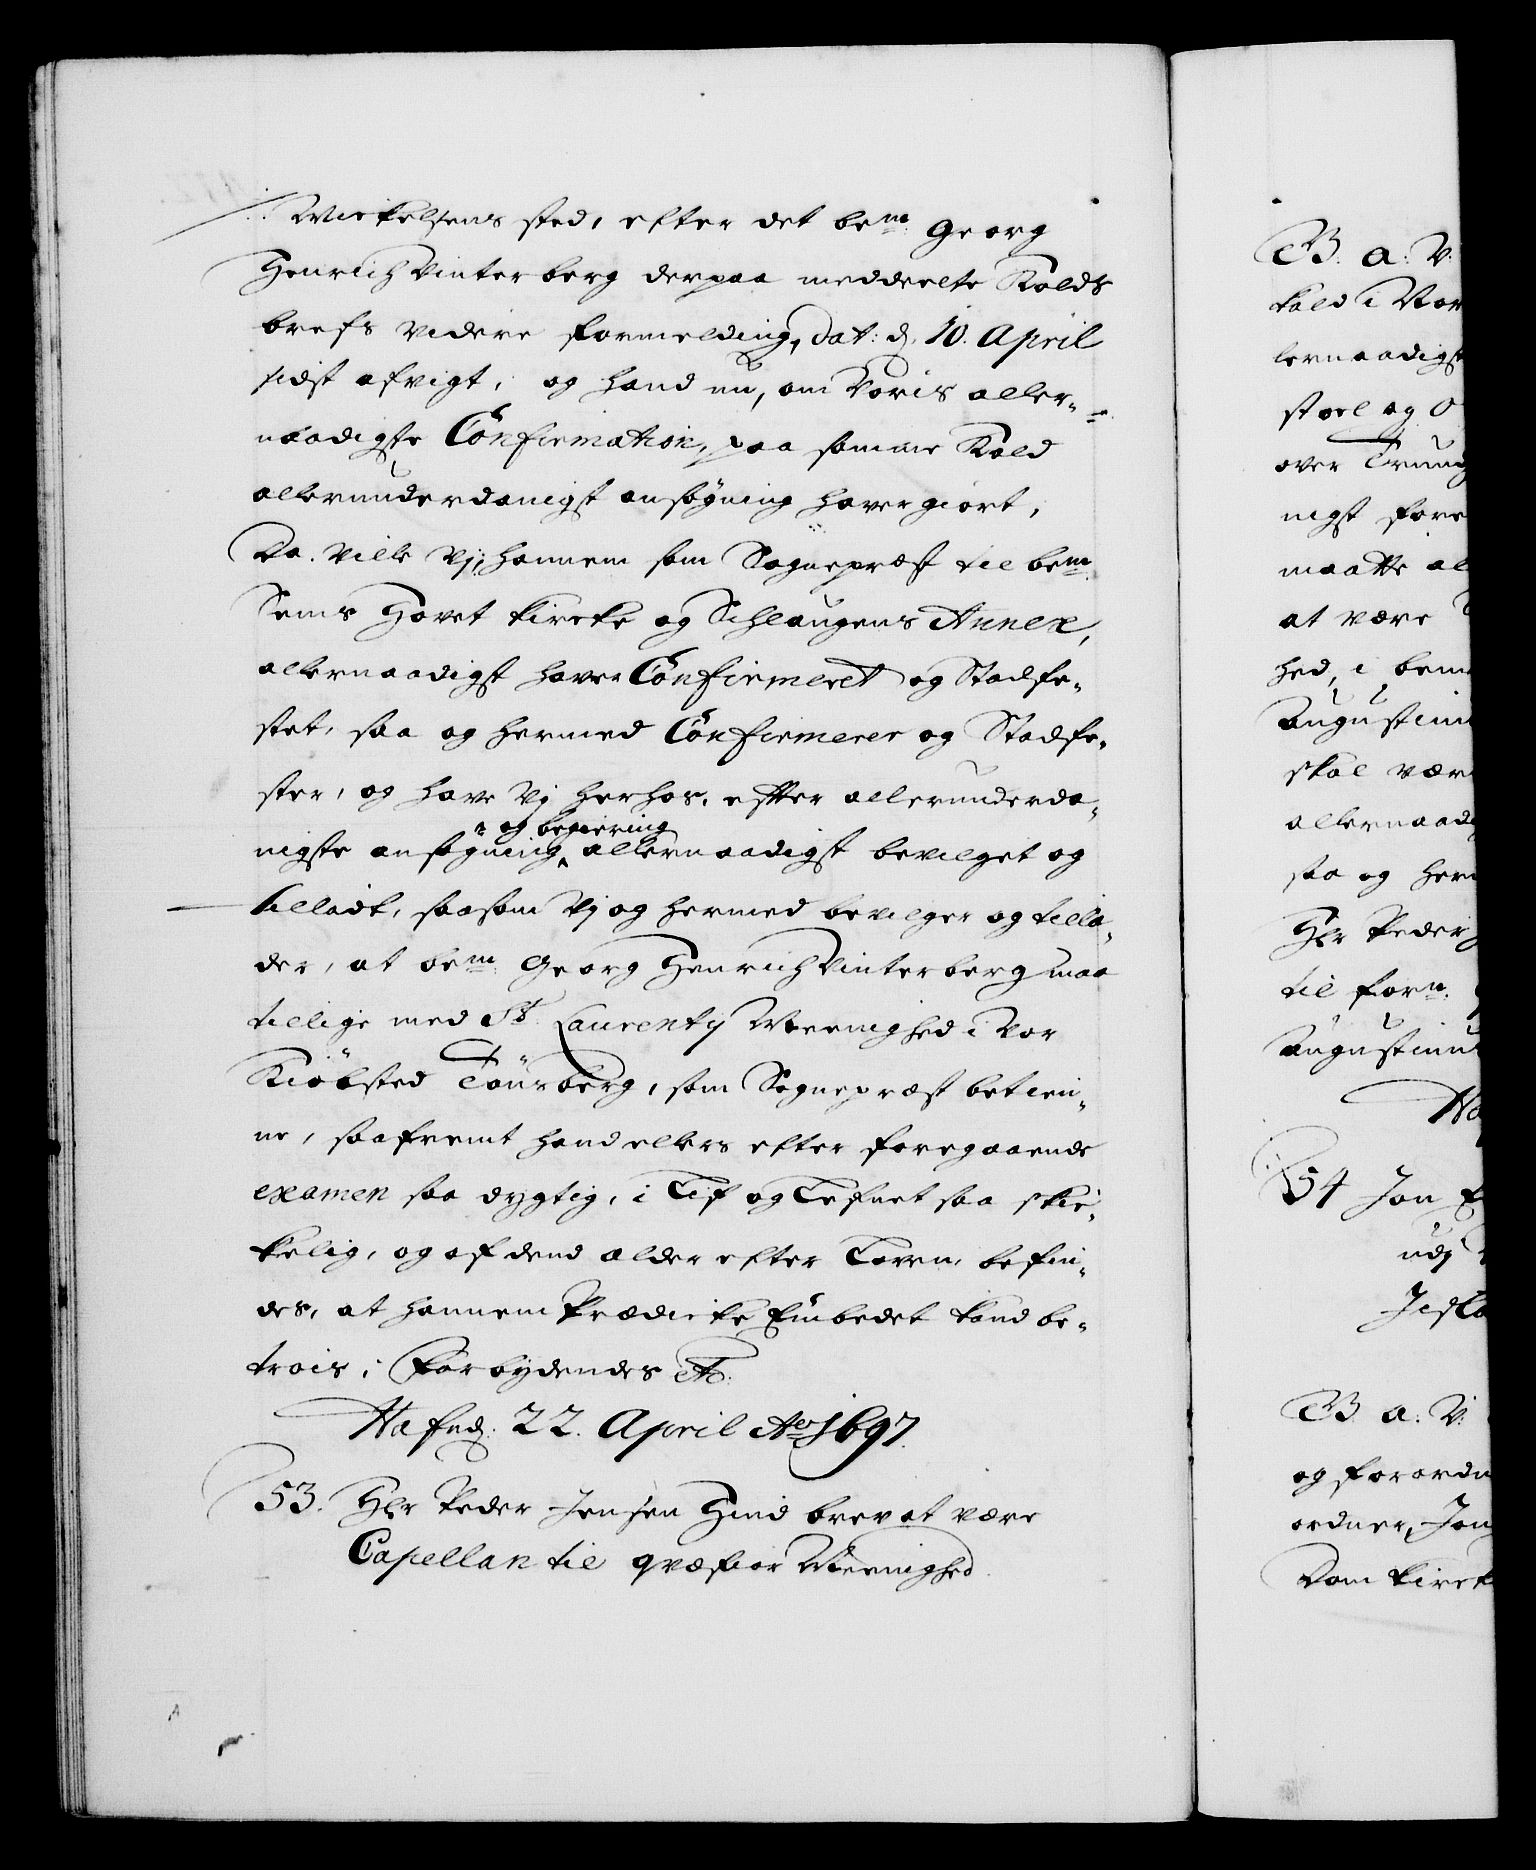 Mickelsens sted, efter det bem: Georg
Henrich Vinterberg derpaa meddeelte Kalds
brefs videre formelding, Dat: d. 10. April
sidst afvigt, og hand nu, om Voris aller-
naadigste Confirmation, paa samme Kald
allerunderdanigst ansøgning haver giort,
Da ville Vj, hannem som Sognepræst til bem:
Sems Hovet kircke og Schlaugens Annex,
allernaadigst haver Confirmeret og Stadfe-
stet, saa og hermed Confirmerer og Stadfe-
ster, og have Vj herhos, efter allerunderda-
og begiering
nigste ansøgning allernaadigst bevilget og
tilladt, saasom Vj og hermed bevilger og tilla-
der, at bem: Georg Henrich Vinterberg maa
tillige med St. Laurentij Meenighed i Vor
Kiöbsted Tönsberg, som Sognepræst betien-
ne, saafremt hand ellers efter foregaaende
examen saa dygtig, i Lif og Lefnet saa skic-
kelig, og af dend alder efter Loven, befin-
des, at hannem Prædicke Embedet kand be-
trois, Forbydendes etc.
Hafnd: 22. April Ao 1697.
53. Hr Peder Jensen Hind brev at være
Capellan til qvæfior Meenighed.
B. a: V:
kald i Nor
lernaadigst
stoel og O
over Trung
nigst fore
maatte al
at være
hed, i bem
Augustinu
skal vær
allernaadig
saa og herm
Hr Peder J
til forn:
Augustinus
Ha
54 Jon E
udj
Jisla
B. a: V:
og forordn
ordner, Jon
Dom kirck